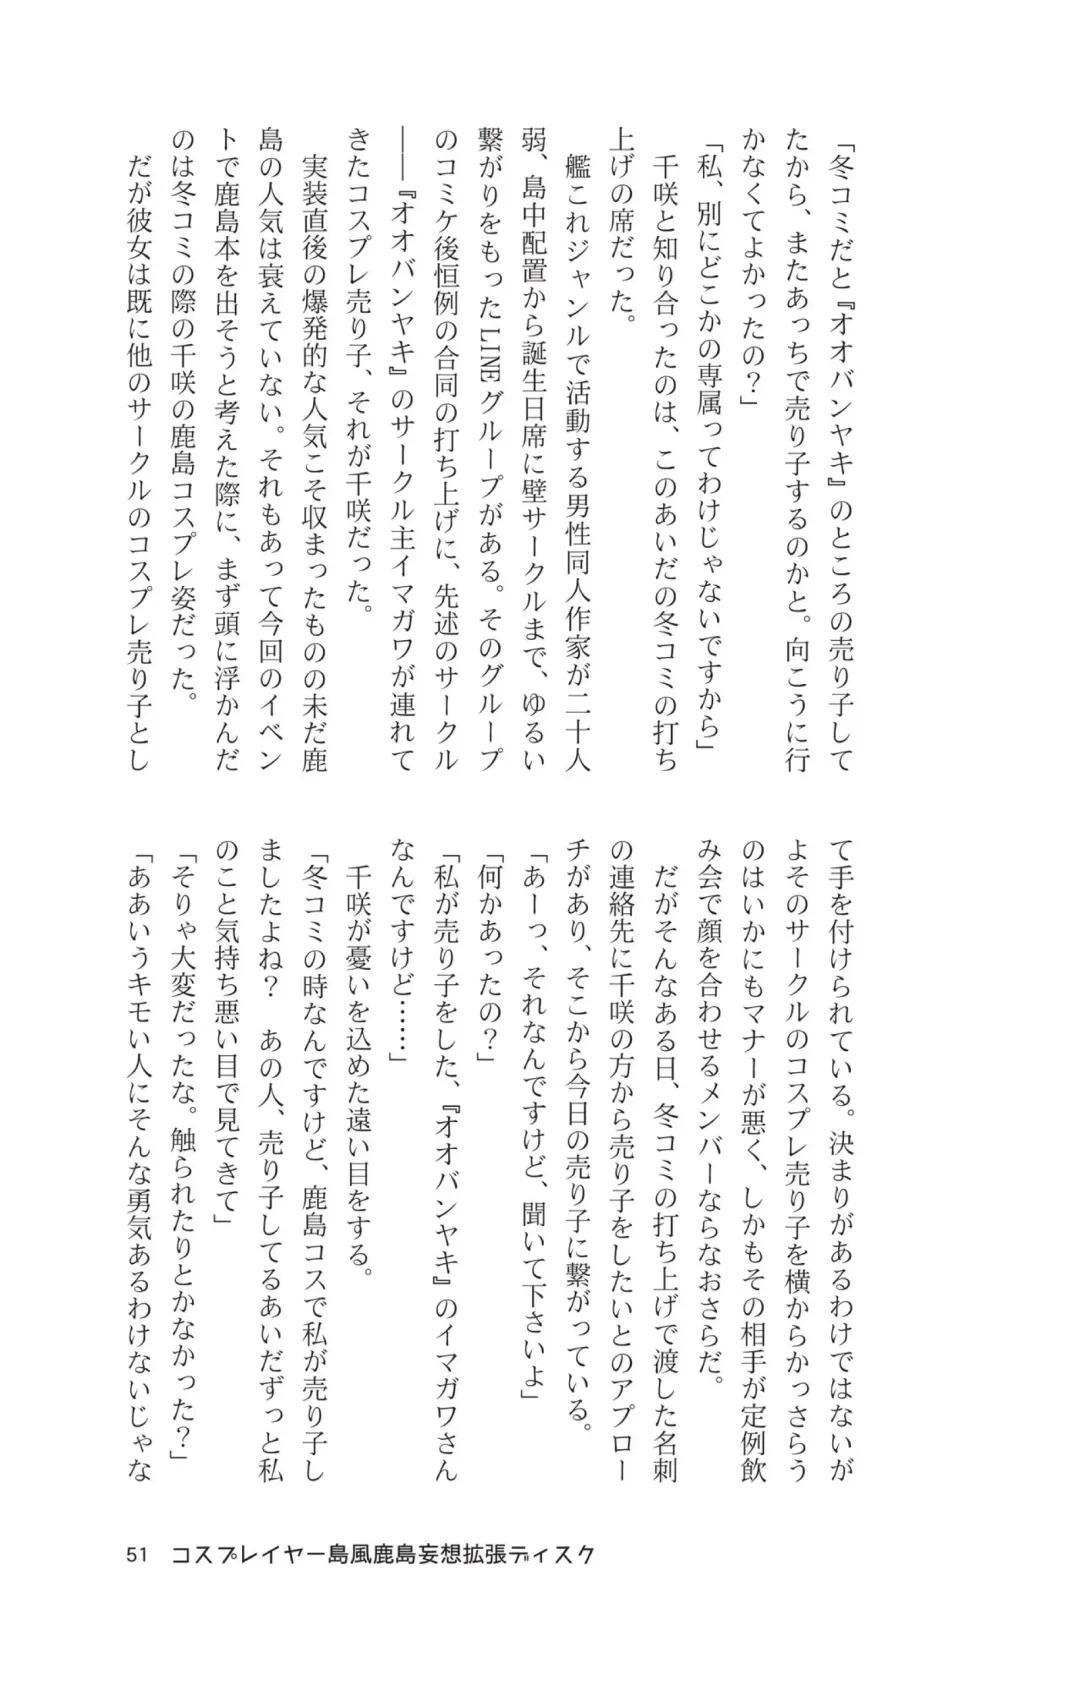 「冬コミだと『オオバンヤキ』のところの売り子して
たから、またあっちで売り子するのかと。向こうに行
かなくてよかったの？」
「私、別にどこかの専属ってわけじゃないですから」
　千咲と知り合ったのは、このあいだの冬コミの打ち
上げの席だった。
　艦これジャンルで活動する男性同人作家が二十人
弱、島中配置から誕生日席に壁サークルまで、ゆるい
繋がりをもったLINEグループがある。そのグループ
のコミケ後恒例の合同の打ち上げに、先述のサークル
――『オオバンヤキ』のサークル主イマガワが連れて
きたコスプレ売り子、それが千咲だった。
　実装直後の爆発的な人気こそ収まったものの未だ鹿
島の人気は衰えていない。それもあって今回のイベン
トで鹿島本を出そうと考えた際に、まず頭に浮かんだ
のは冬コミの際の千咲の鹿島コスプレ姿だった。
　だが彼女は既に他のサークルのコスプレ売り子とし
て手を付けられている。決まりがあるわけではないが
よそのサークルのコスプレ売り子を横からかっさらう
のはいかにもマナーが悪く、しかもその相手が定例飲
み会で顔を合わせるメンバーならなおさらだ。
　だがそんなある日、冬コミの打ち上げで渡した名刺
の連絡先に千咲の方から売り子をしたいとのアプロー
チがあり、そこから今日の売り子に繋がっている。
「あーっ、それなんですけど、聞いて下さいよ」
「何かあったの？」
「私が売り子をした、『オオバンヤキ』のイマガワさん
なんですけど……」
　千咲が憂いを込めた遠い目をする。
「冬コミの時なんですけど、鹿島コスで私が売り子し
ましたよね？　あの人、売り子してるあいだずっと私
のこと気持ち悪い目で見てきて」
「そりゃ大変だったな。触られたりとかなかった？」
「ああいうキモい人にそんな勇気あるわけないじゃな
51　コスプレイヤー島風鹿島妄想拡張ディスク